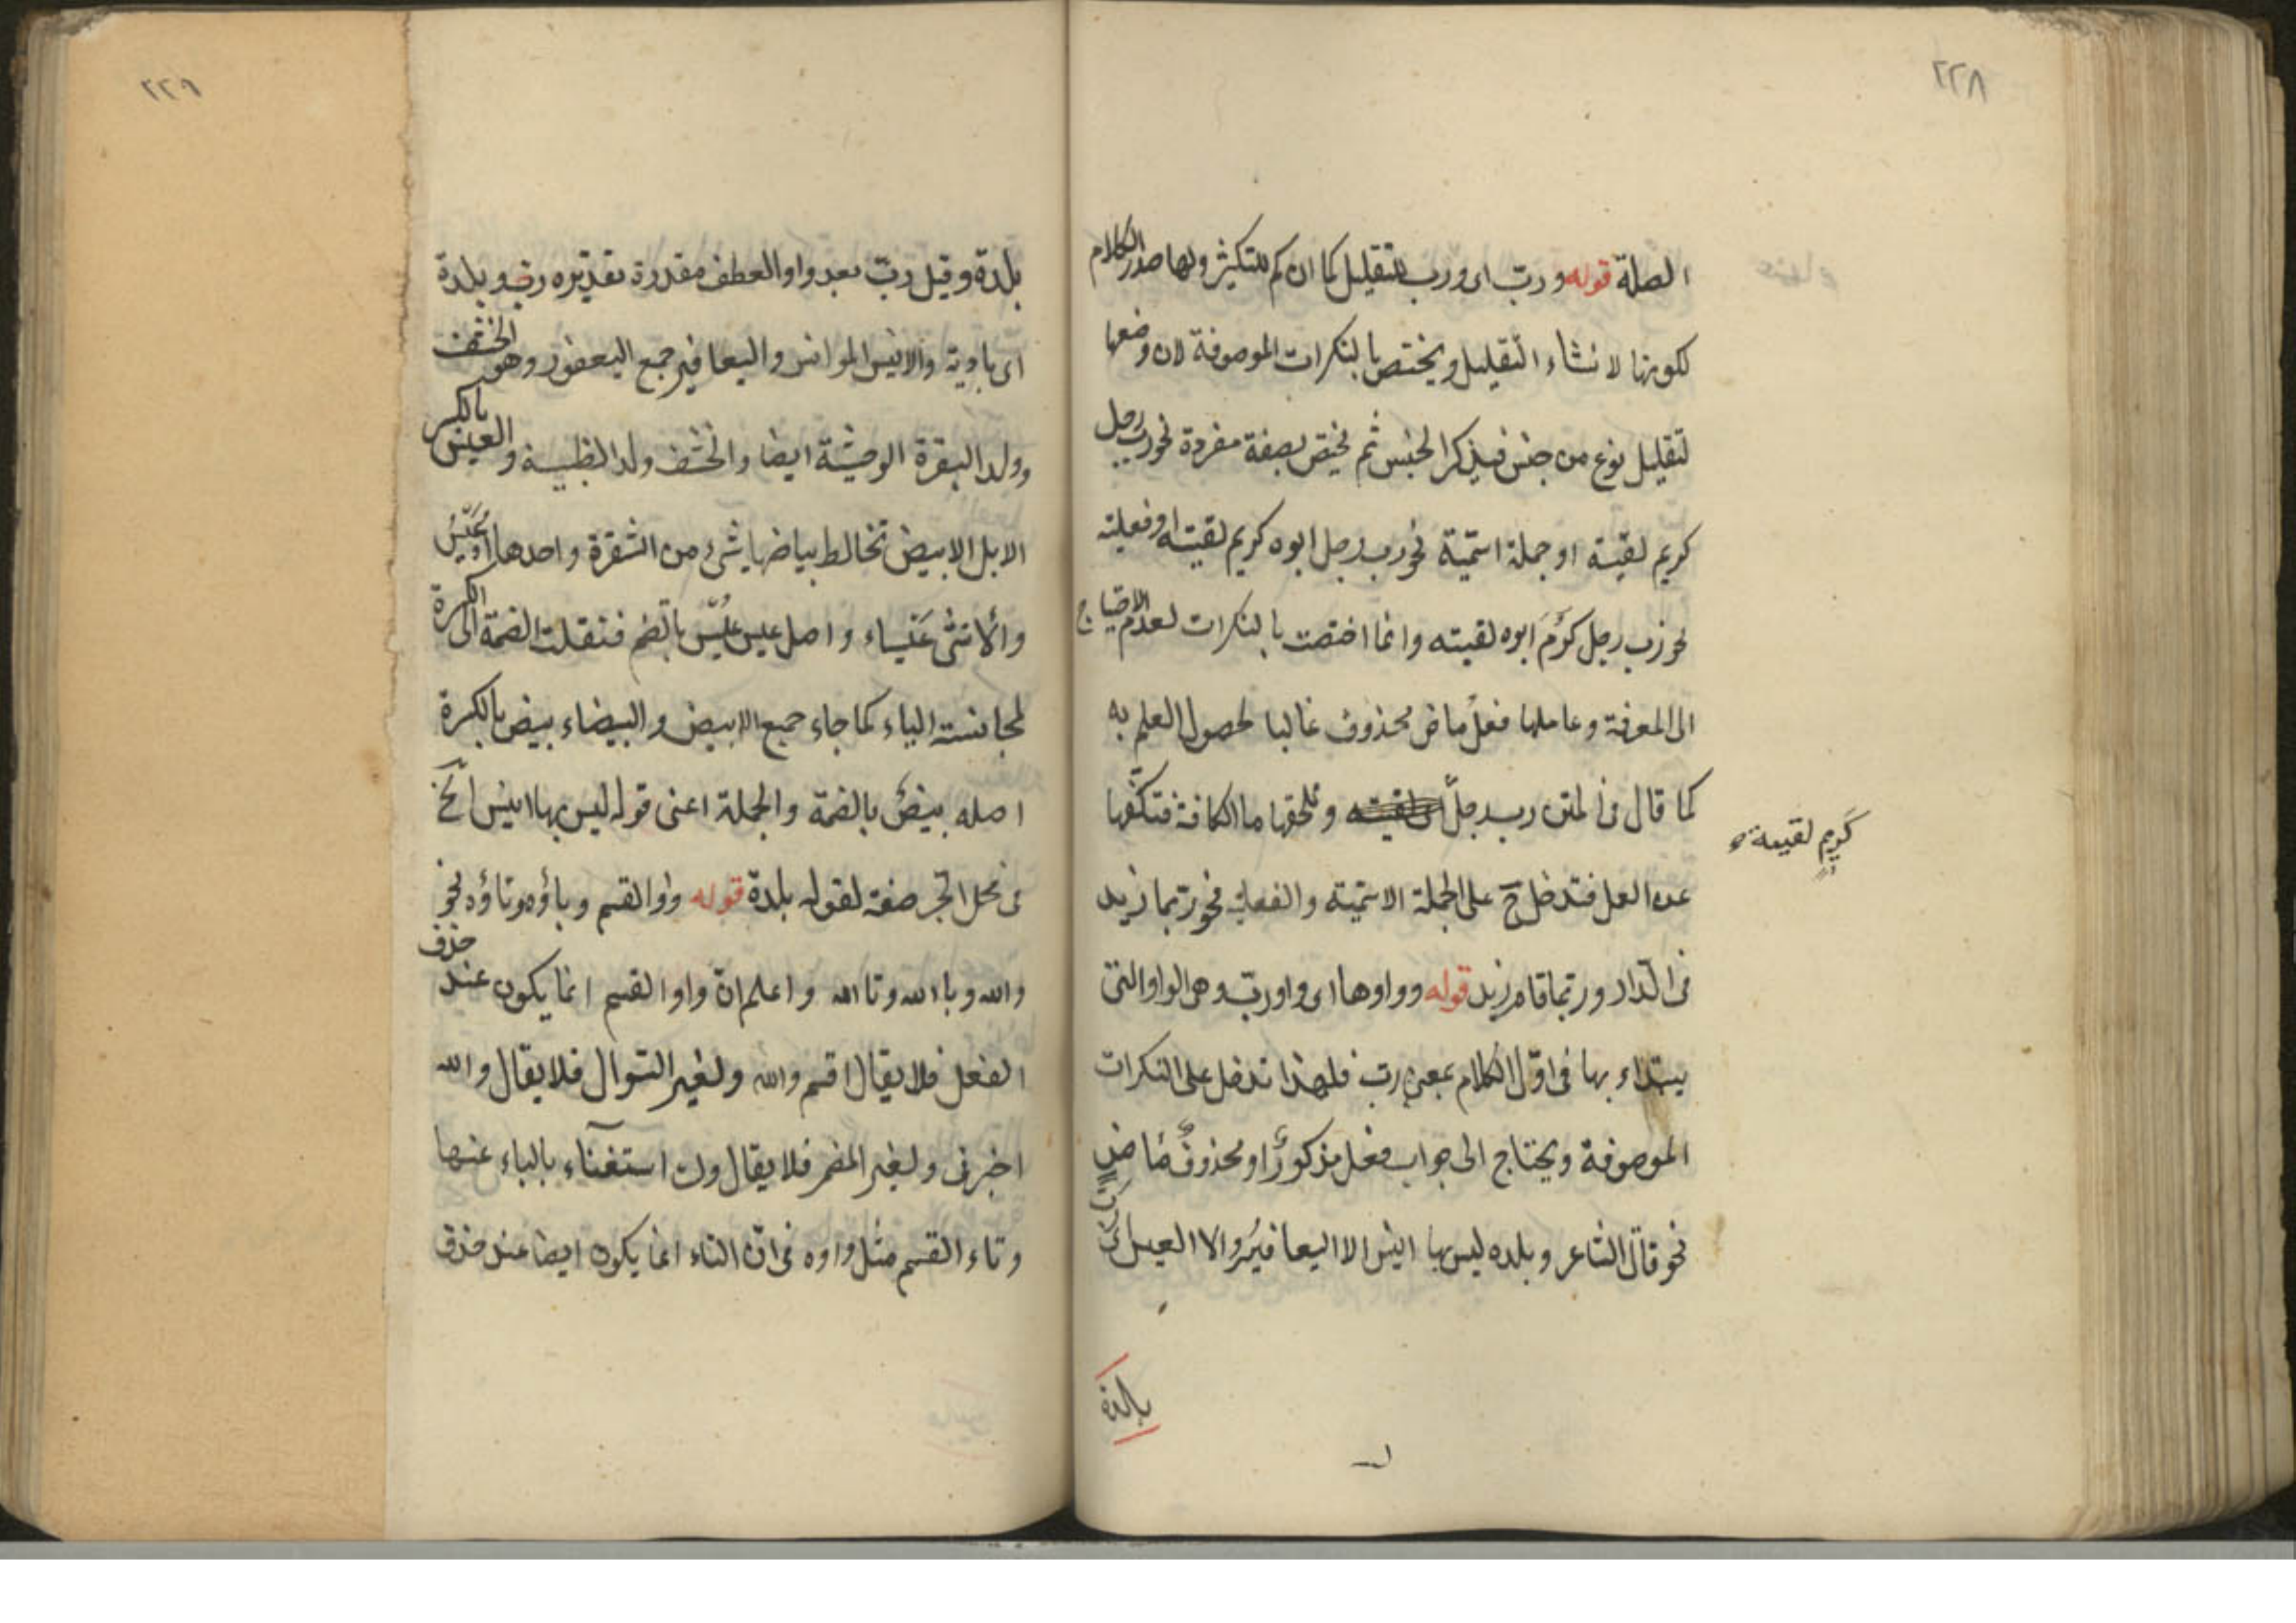 ٢٢٨
الصلة قوله ورب اى ورب للتقليل كما ان كم للتكثير ولها صدر الكلام
لكونها لانشاء التقليل ويختص بالنكرات الموصوفة لان وضعها
لتقليل نوع من جنس فيذكر الجنس ثم يختص بصفة مفردة نحو رب رجل
كريم لقيته او جملة اسمية نحو رب رجل ابوه كريم لقيته او فعلية
نحو رب رجل كرم ابوه لقيته وانما اختصت بالنكرات لعدم الاحتياج
الى المعرفة وعاملها فعل ماض محذوف غالبا لحصول العلم به
كما قال فى المتن رب رجل وتلحقها ما الكافة فتكفها
كريم لقيته صح
عن العمل فتدخل ح على الجملة الاسمية والفعلية نحو ربما زيد
فى الدار وربما قام زيد قوله وواوها اى واو رب وهى الواو التى
يبتداء بها فى اول الكلام بمعنى رب فلهذا تدخل على النكرات
الموصوفة ويحتاج الى جواب فعل مذكور او محذوف ماض
نحو قال الشاعر وبلده ليس بها انيس الا اليعافير والا العيس اى
بلدة
٢٢٩
بلدة وقيل رب بعد واو العطف مقدرة تقديره رب وبلدة
اى بادية والانيس الموانس واليعافير جمع اليعفور وهو الخشف
وولد البقرة الوحشة ايضا والخشف ولد الظبية والعيس بالكسر
الابل الابيض تخالط بياضها شئ من الشقرة واحدها اعيس
والانثى عيساء واصل عيس عيس بالضم فنقلت الضمة الى الكسرة
لمجانسة الياء كما جاء جمع الابيض والبيضاء بيض بالكسرة
اصله بيض بالضمة والجملة اعنى قوله ليس بها انيس الخ
فى محل الجر صفة لقوله بلدة قوله وواو القسم وباؤه وتاؤه نحو
والله وبالله وتالله واعلم ان واو القسم انما يكون عند حذف
الفعل فلا يقال اقسم والله ولغير السوال فلا يقال والله
اخبرنى ولغير المضمر فلا يقال وك استغناء بالباء عنها
وتاء القسم مثل واوه فى ان التاء انما يكون ايضا عند حذف